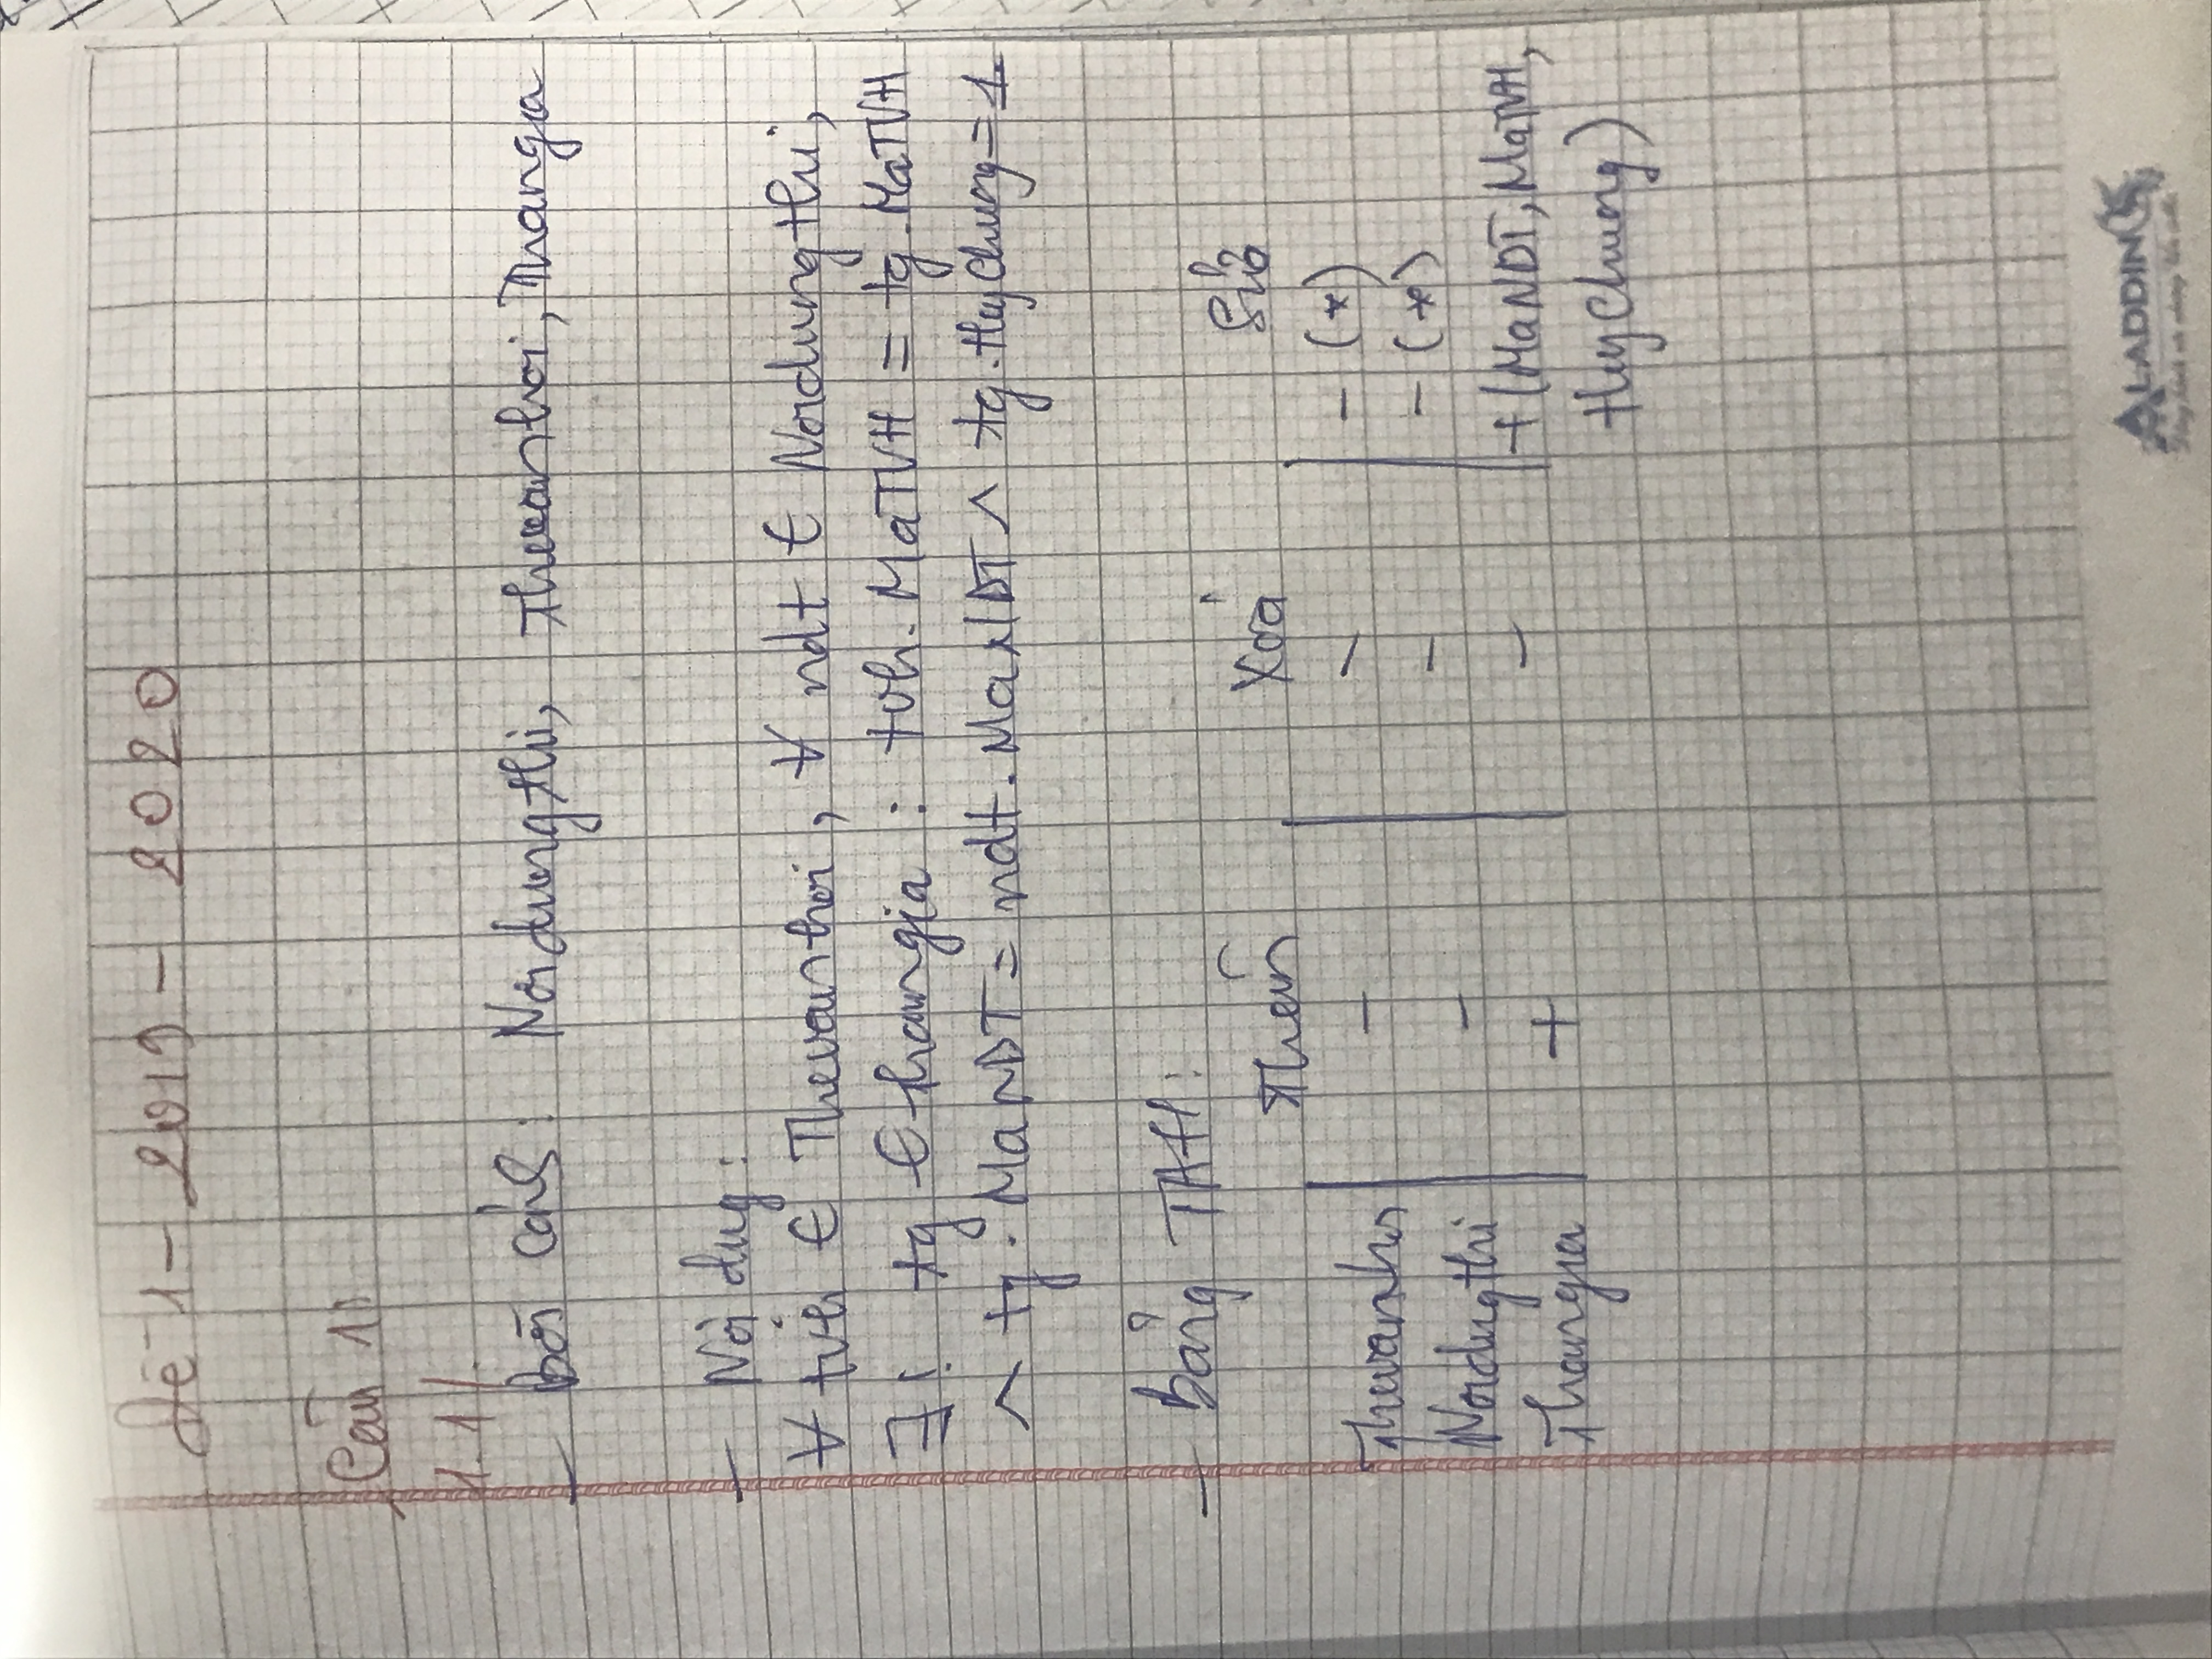 Đề 1 - 2019 - 2020
Câu 1:
1.1/.
- Bối cảnh: Noidungthi, Thevanhoi, Thamgia
- Nội dug:
∀ tvh ∈ Thevanhoi, ∀ ndt ∈ Noidungthi,
∃! tg ∈ thamgia : tvh.MaTVH = tg.MaTVH
∧ tg.MaNDT = ndt.MaNDT ∧ tg.HuyChuong = 1.
- Bảng TAH:
Thêm Xoá Sửa
Thevanhoi - - - (*)
Noidugthi - - - (*)
Thamgia + - + (MaNDT, MaTVH,
HuyChuong)
ALADDIN